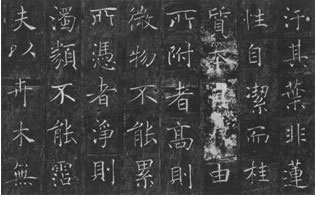 汙其葉非蓮
性自潔而桂
質本由
所附者高則
微物不能累
所憑者淨則
濁類不能霑
夫以卉木無